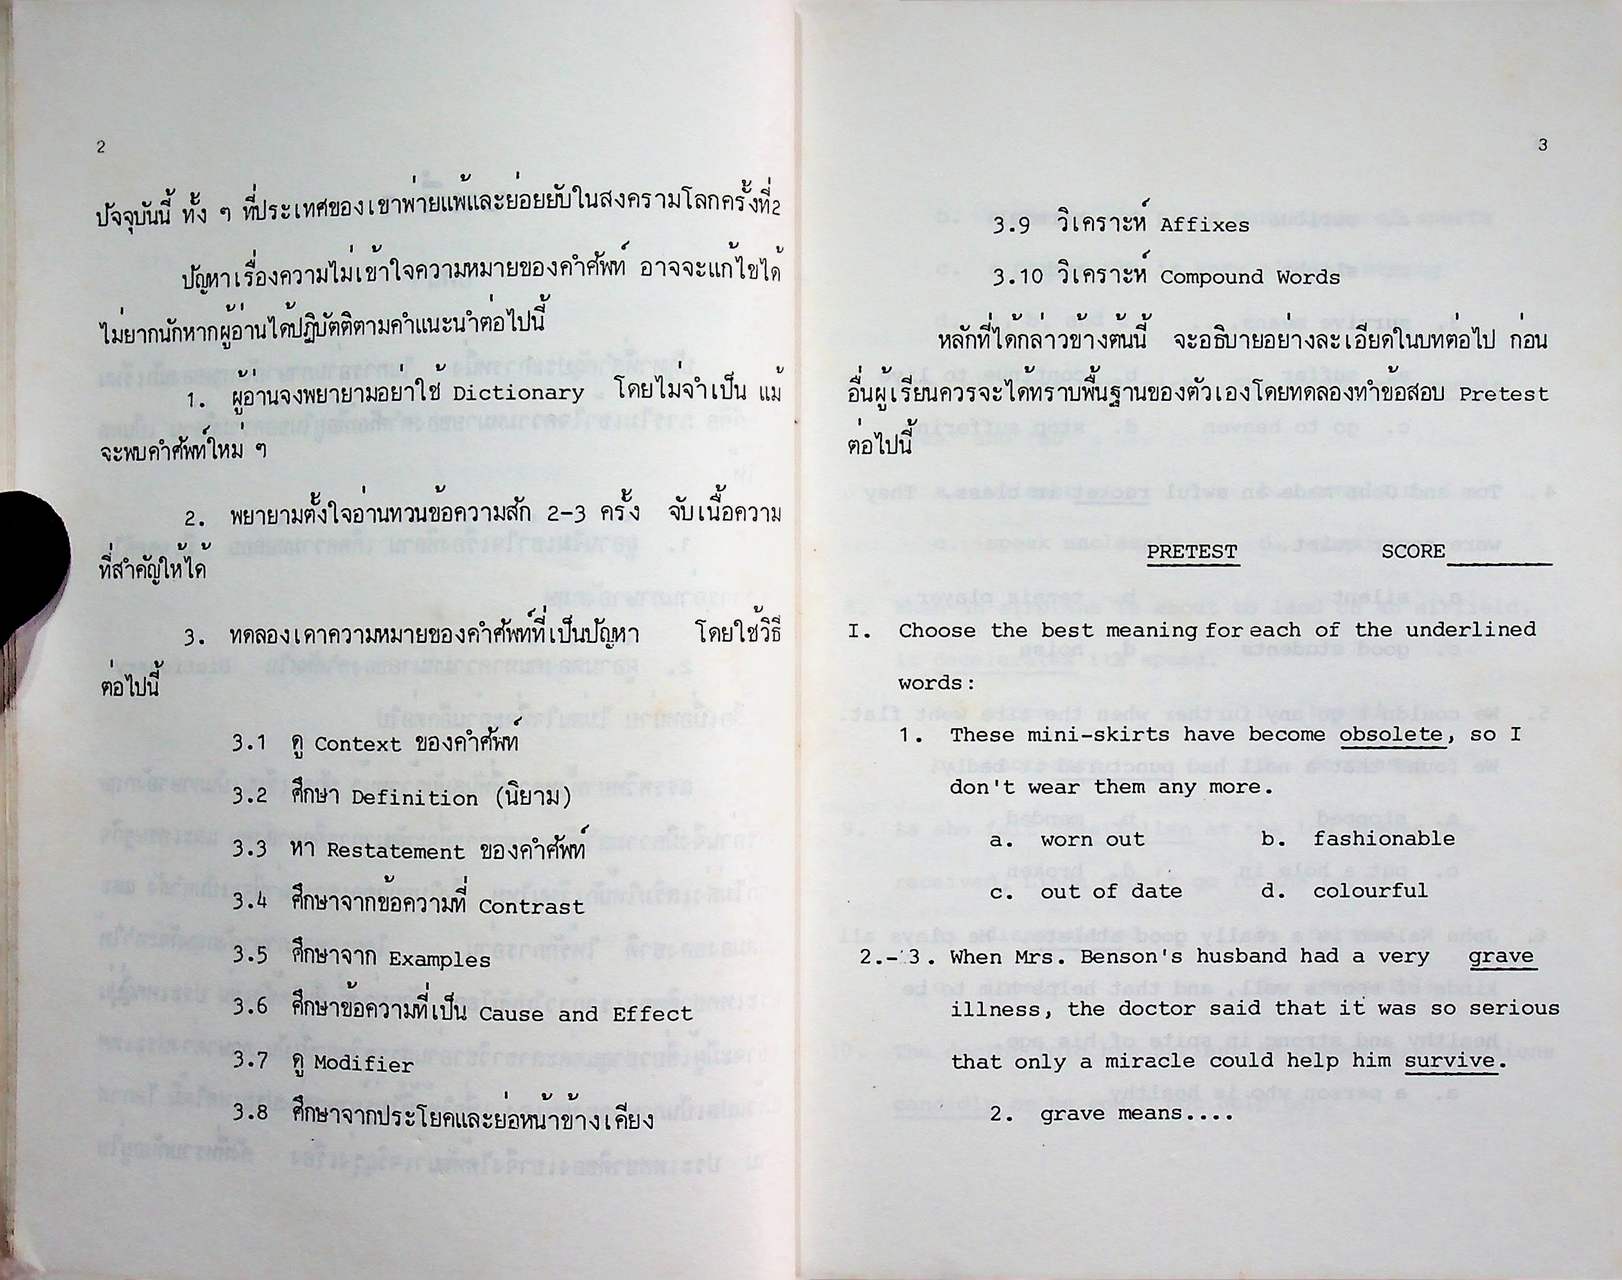 2
ปัจจุบันนี้ ทั้ง ๆ ที่ประเทศของเขาพ่ายแพ้และย่อยยับในสงครามโลกครั้งที่2
ปัญหาเรื่องความไม่เข้าใจความหมายของคำศัพท์ อาจจะแก้ไขได้
ไม่ยากนักหากผู้อ่านได้ปฏิบัติตามคำแนะนำต่อไปนี้
1. ผู้อ่านจงพยายามอย่าใช้ Dictionary โดยไม่จำเป็น แม้
จะพบคำศัพท์ใหม่ ๆ
2. พยายามตั้งใจอ่านทวนข้อความสัก 2-3 ครั้ง จับเนื้อความ
ที่สำคัญให้ได้
3. ทดลองเดาความหมายของคำศัพท์ที่เป็นปัญหา โดยใช้วิธี
ต่อไปนี้
3.1 ดู Context ของคำศัพท์
3.2 ศึกษา Definition (นิยาม)
3.3 หา Restatement ของคำศัพท์
3.4 ศึกษาจากข้อความที่ Contrast
3.5 ศึกษาจาก Examples
3.6 ศึกษาข้อความที่เป็น Cause and Effect
3.7 ดู Modifier
3.8 ศึกษาจากประโยคและย่อหน้าข้างเคียง
3
3.9 วิเคราะห์ Affixes
3.10 วิเคราะห์ Compound Words
หลักที่ได้กล่าวข้างต้นนี้ จะอธิบายอย่างละเอียดในบทต่อไป ก่อน
อื่นผู้เรียนควรจะได้ทราบพื้นฐานของตัวเองโดยทดลองทำข้อสอบ Pretest
ต่อไปนี้
PRETEST SCORE
I. Choose the best meaning for each of the underlined
words:
1. These mini-skirts have become obsolete, so I
don't wear them any more.
a. worn out b. fashionable
c. out of date d. colourful
2.-3. When Mrs. Benson's husband had a very grave
illness, the doctor said that it was so serious
that only a miracle could help him survive.
2. grave means....